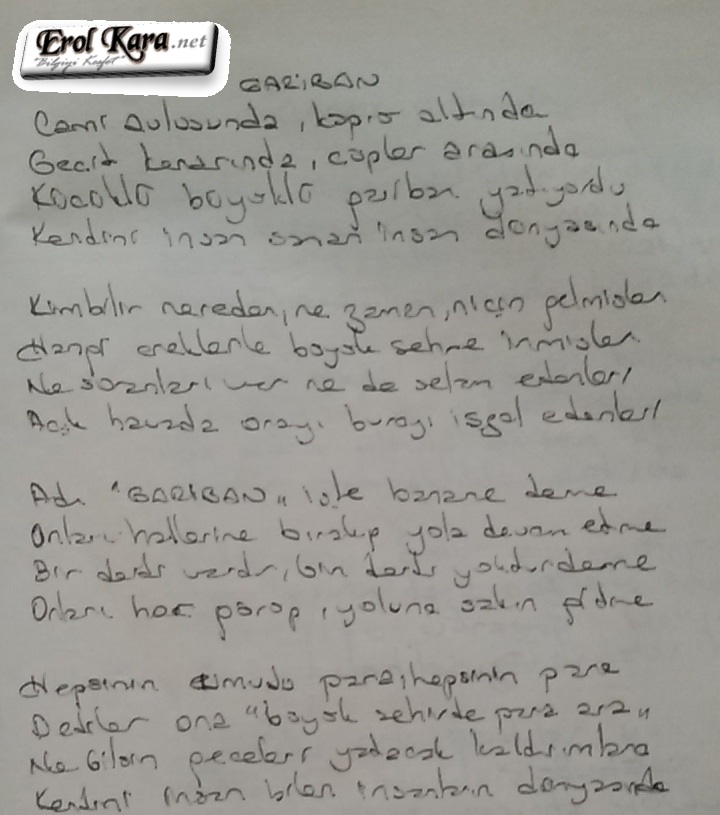 Erol Kara.net
"Bilgiyi Keşfet"
GARİBAN
Cami avlusunda, köprü altında
Geçit kenarında, çöpler arasında
Küçüklü büyüklü gariban yatıyordu
Kendini insan sanan insan dünyasında
Kimbilir nereden, ne zaman, niçin gelmişler
Hangi ereklerle büyük şehre inmişler
Ne soranları var ne de selam edenleri
Açık havada orayı burayı işgal edenleri
Adı "GARİBAN" işte banane deme
Onları hallerine bırakıp yola devam etme
Bir derdi vardır, bin derdi yoktur deme
Onları hor görüp, yoluna sakın gitme
Hepsinin umudu para, hepsinin para
Dediler ona "büyük şehirde para ara"
Ne bilsin geceleri yatacak kaldırımlara
Kendini insan bilen insanların dünyasında